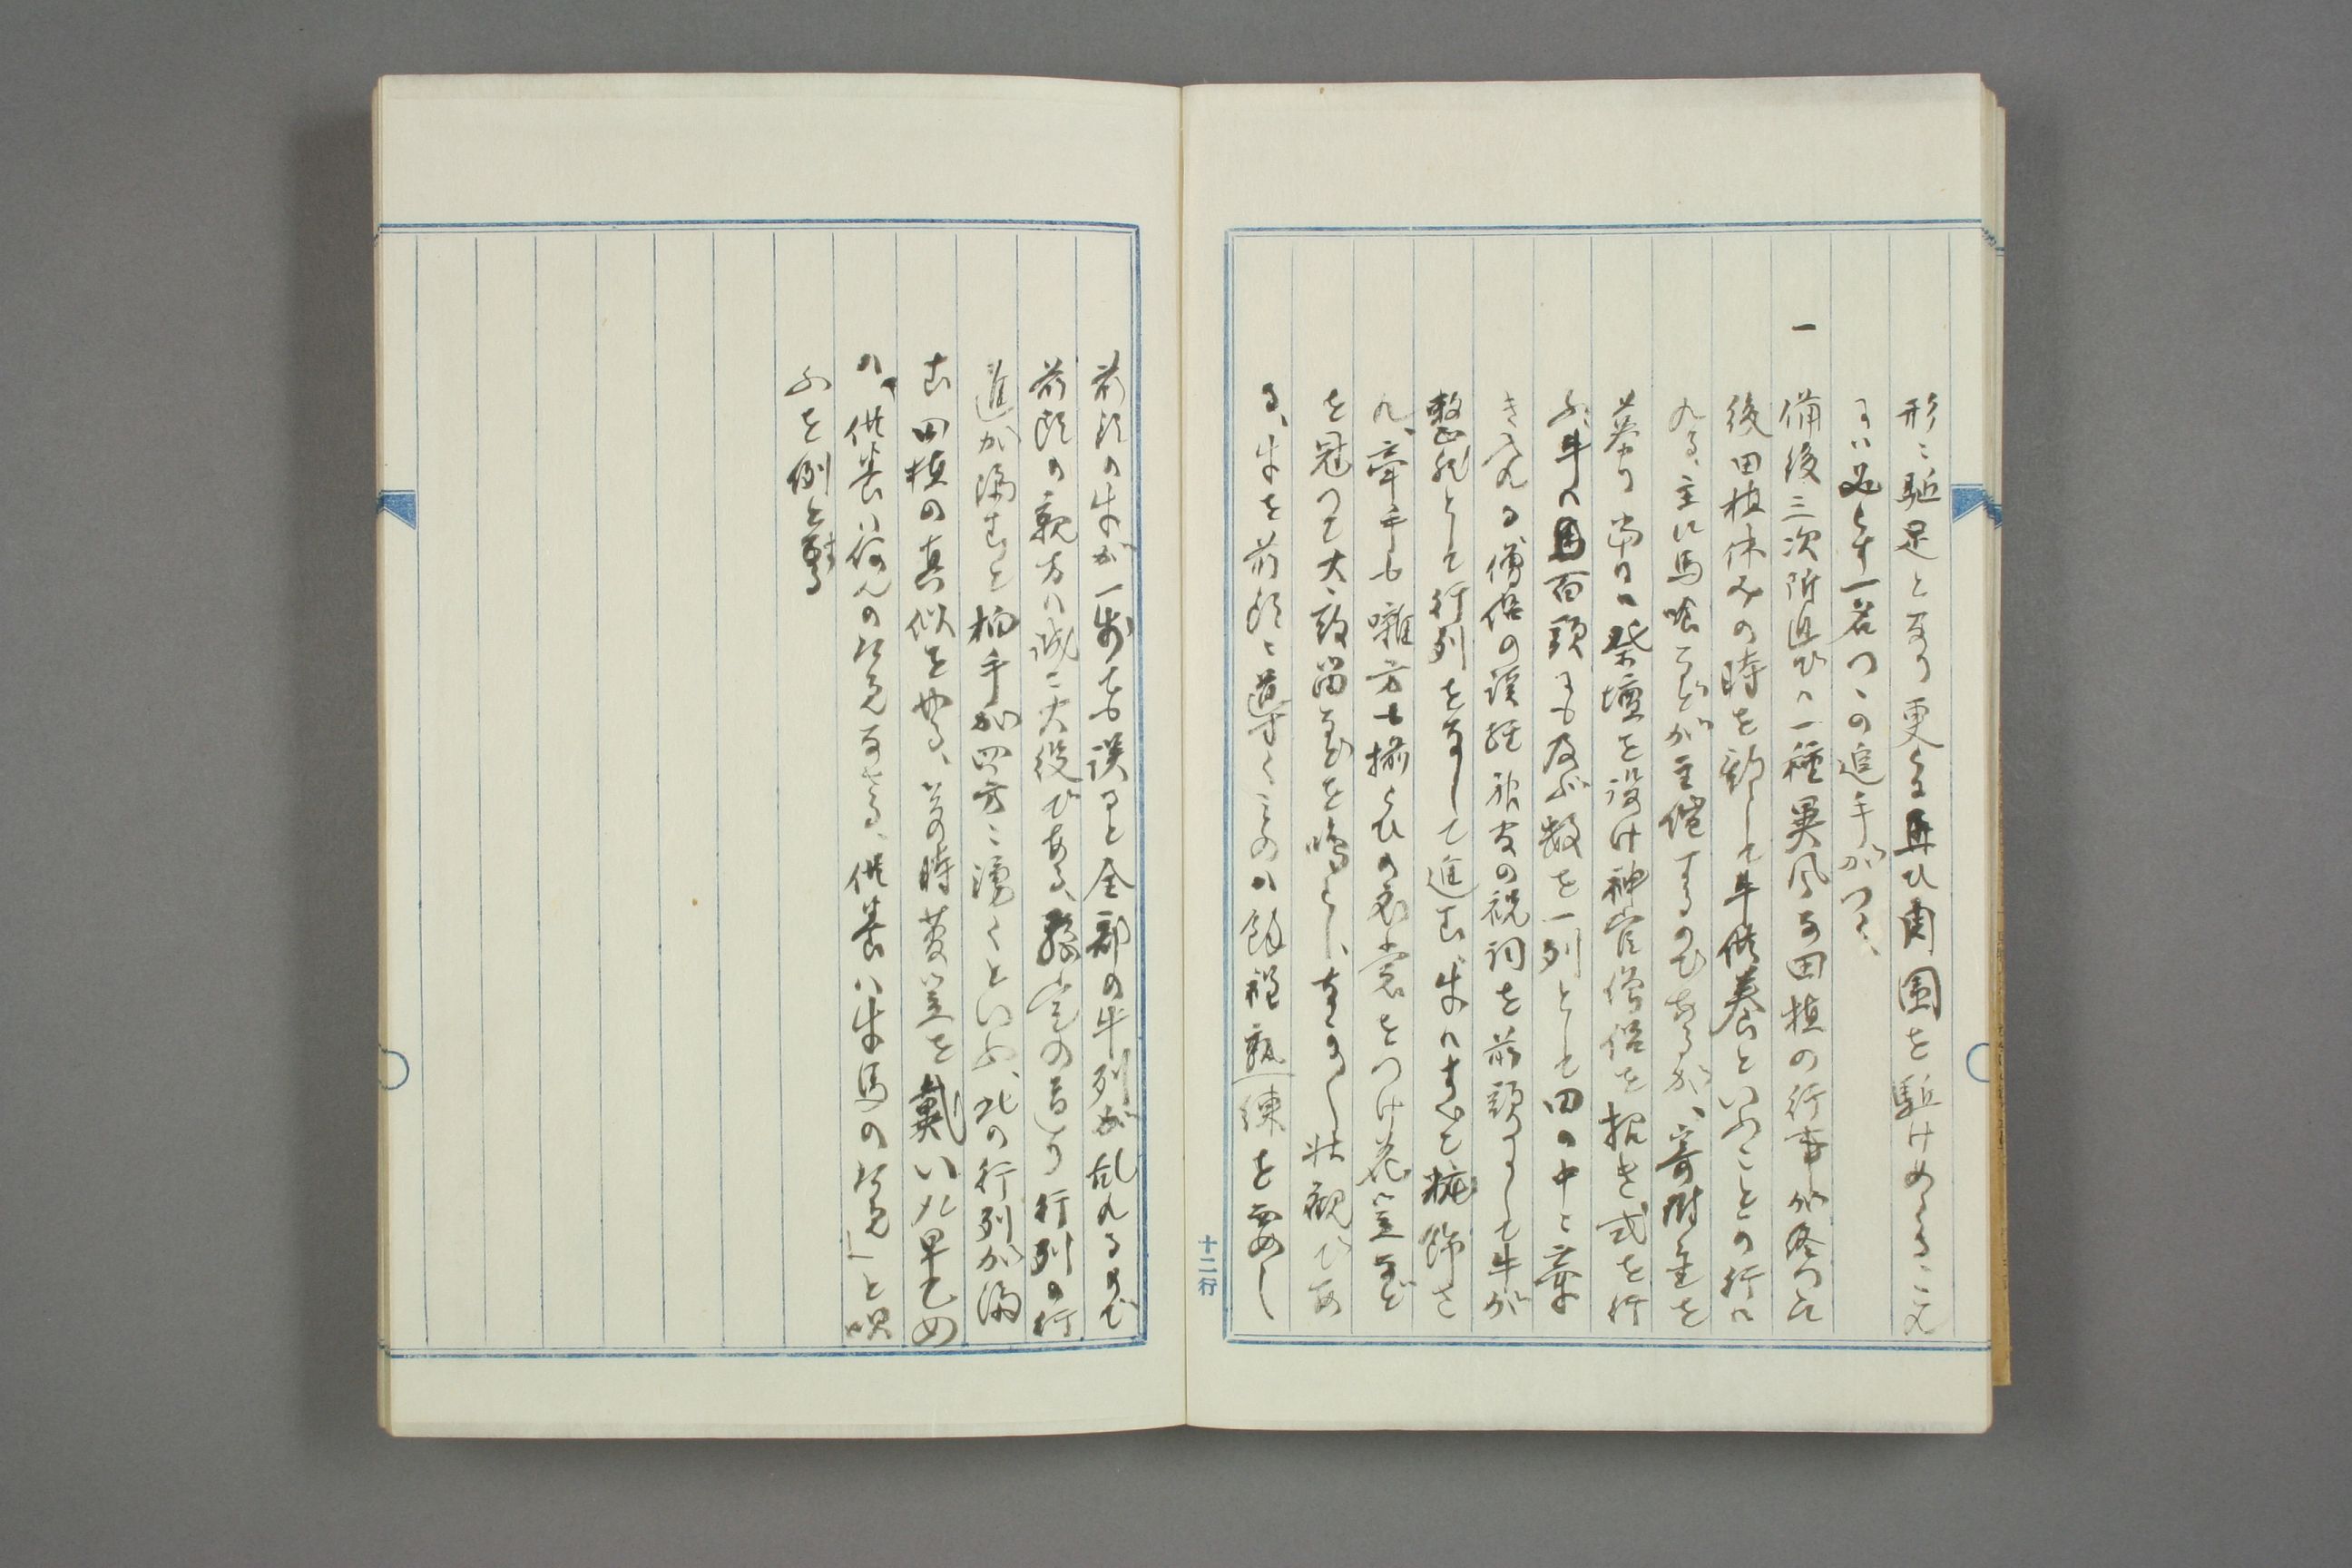 形に駈足となり更に再び周囲を駈けめぐる、之
には必ず一名づゝの追手がつく、
一 備後三次附近では一種異風な田植の行事が終つた
後田植休みの時を卜して牛供養といふことの行は
れる、主に馬喰などが主催するのであるが、寄附金を
募り当日は祭壇を設け神官僧侶を招き式を行
ふ、牛は百頭にも及ぶ数を一列として田の中に牽
き入れる僧侶の読経神官の祝詞を前頭にして牛が
整然として行列をなして進む、牛はすべて粧飾さ
れ、牽手も囃方も揃ひの衣裳をつけ花笠など
を冠つて大鼓笛などを鳴らし、すこぶる壮観であ
る、牛を前頭に導くものは飼槽熟練を要し
十二行
前頭の牛が一歩でも誤ると全部の牛列が乱れるので
前頭の親方は誠に大役である、豫定の通り行列の行
進が済むと拍手が四方に湧くといふ、此の行列が済
む田植の真似をやる、其の時菅笠を戴いた早乙女
は、供養は何んの供養なさる、供養は牛馬の供養」と唄
ふを例とする